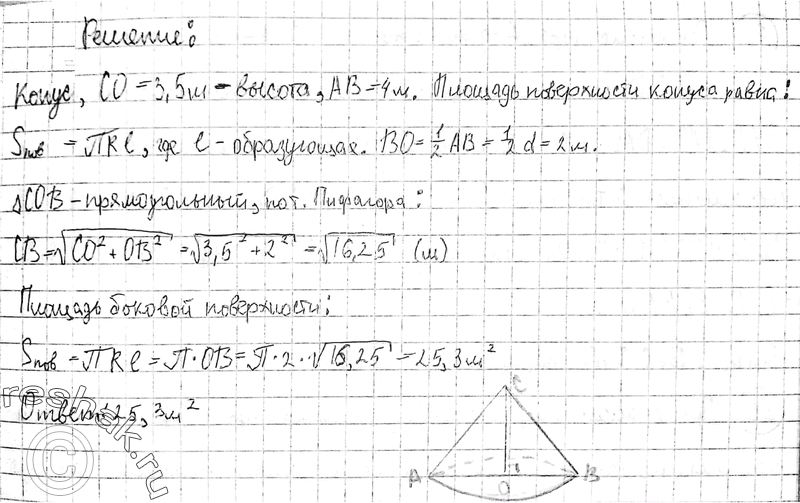 Решение:
Конус, CO = 3,5м - высота, AB = 4м. Площадь поверхности конуса равна:
Sпов = ПRl, где l - образующая. BO = 1/2 AB = 1/2 d = 2м.
△COB - прямоугольный, по т. Пифагора:
CB = √(CO² + OB²) = √(3,5² + 2²) = √16,25 (м)
Площадь боковой поверхности:
Sпов = ПRl = П · OB = П · 2 · √16,25 = 25,3м²
Ответ: 25,3м²
C
A O B
reshak.ru
©